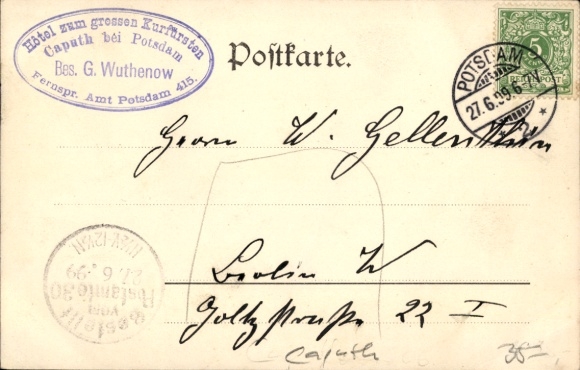 Hôtel zum grossen Kurfürsten
Caputh bei Potsdam
Bes. G. Wuthenow
Fernspr. Amt Potsdam 415.
Postkarte.
5
REICHSPOST
POTSDAM
27.6.99.6-7N.
Herrn W. Gellenthin
Berlin W
Goltzstraße 22 I
Bestellt
vom
Postamte 30
27.6.99
Caputh
35-